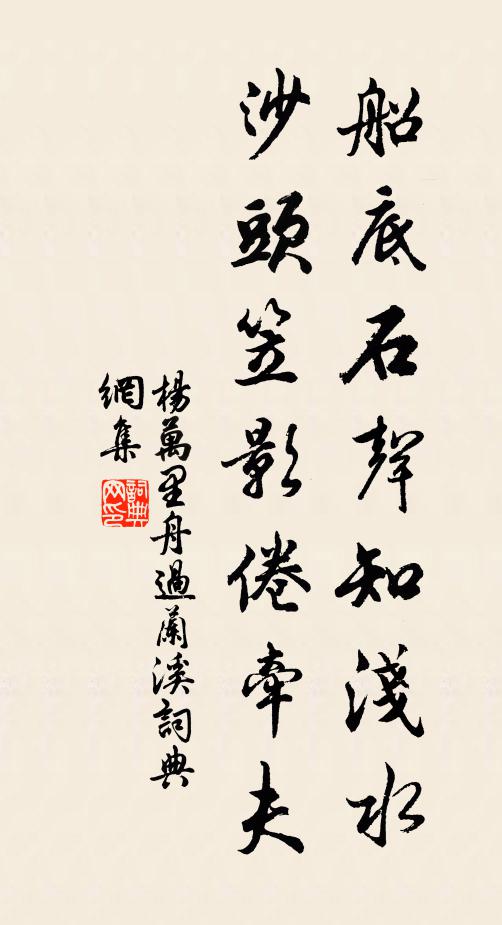 船底石聲知淺水
沙頭笠影倦牽夫
楊萬里舟過蘭溪詞典
網集
詞典
网印